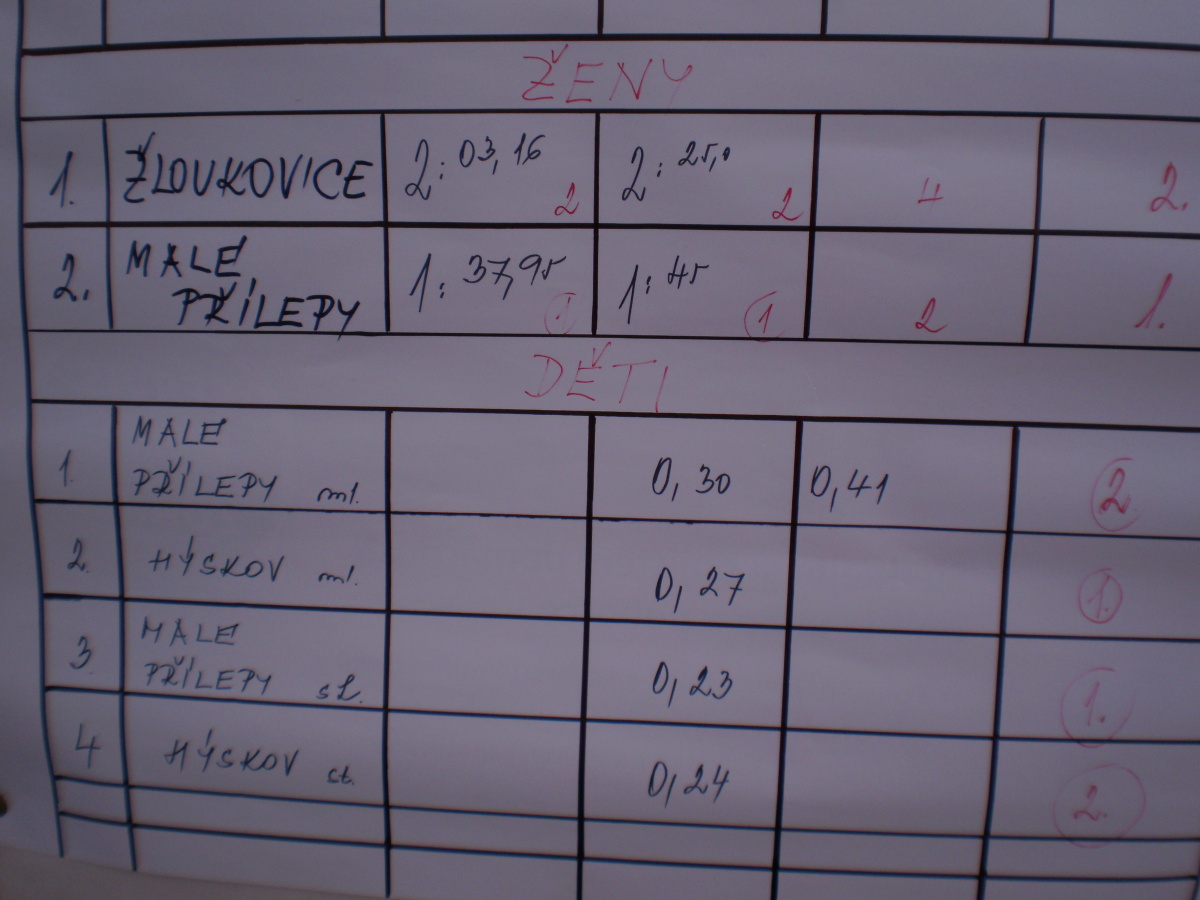 ŽENY
1. ŽLOUKOVICE 2:03,16 2 2:25,0 2 4 2.
2. MALÉ PŘÍLEPY 1:37,95 1 1:45 1 2 1.
DĚTI
1. MALÉ PŘÍLEPY ml. 0,30 0,41 2
2. HÝSKOV ml. 0,27 1.
3 MALÉ PŘÍLEPY st. 0,23 1.
4 HÝSKOV st. 0,24 2.